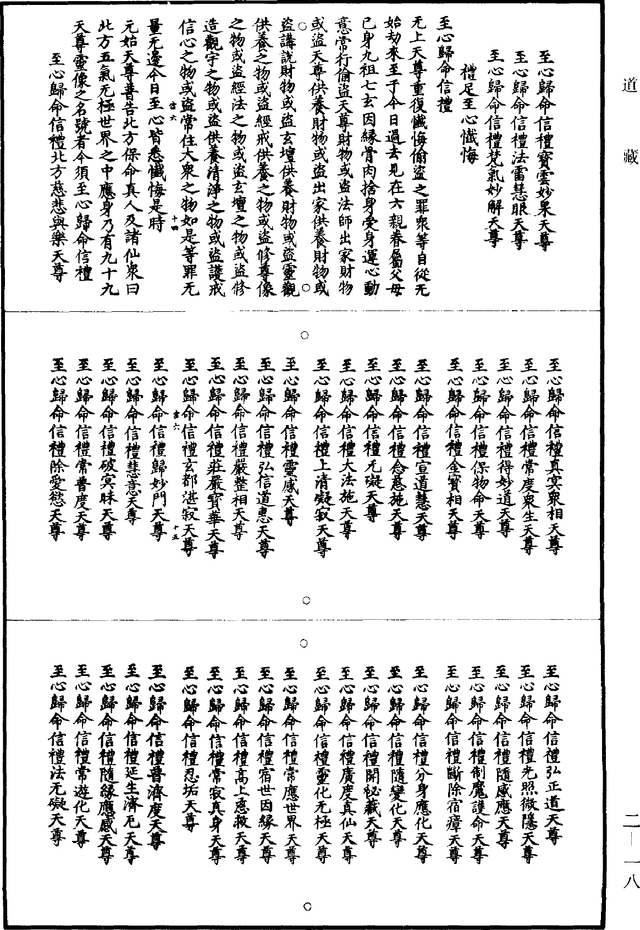 道藏
至心歸命信禮寶雲妙果天尊
至心歸命信禮法雷慧眼天尊
至心歸命信禮梵氣妙解天尊
禮足至心懺悔
至心歸命信禮
无上天尊重復懺悔偷盜之罪衆等自從无
始劫來至于今日過去見在六親眷屬父母
已身九祖七玄因緣骨肉捨身受身運心動
意常行偷盜天尊財物或盜法師出家財物
或盜天尊供養財物或盜出家供養財物或
盜講說財物或盜玄壇供養財物或盜靈觀
供養之物或盜經戒供養之物或盜修尊像
之物或盜經法之物或盜玄壇之物或盜修
造觀宇之物或盜供養清淨之物或盜護戒
信心之物或盜常住大衆之物如是等罪无
量无邊今日至心皆悉懺悔是時
元始天尊普告北方保命真人及諸仙衆曰
北方五氣无極世界之中應身乃有九十九
天尊靈像之名號者今須至心歸命信禮
至心歸命信禮北方慈悲與樂天尊
至心歸命信禮真寂衆相天尊
至心歸命信禮常度衆生天尊
至心歸命信禮得妙道天尊
至心歸命信禮保物命天尊
至心歸命信禮金寶相天尊
至心歸命信禮宣道慧天尊
至心歸命信禮念慈施天尊
至心歸命信禮无礙天尊
至心歸命信禮大法施天尊
至心歸命信禮上清凝寂天尊
至心歸命信禮靈感天尊
至心歸命信禮弘信道惠天尊
至心歸命信禮嚴整相天尊
至心歸命信禮莊嚴寶華天尊
至心歸命信禮玄都湛寂天尊
至心歸命信禮歸妙門天尊
至心歸命信禮慧意天尊
至心歸命信禮破冥昧天尊
至心歸命信禮常普度天尊
至心歸命信禮除愛慾天尊
至心歸命信禮弘正道天尊
至心歸命信禮光照微隱天尊
至心歸命信禮隨感應天尊
至心歸命信禮制魔護命天尊
至心歸命信禮斷除宿瘴天尊
至心歸命信禮分身應化天尊
至心歸命信禮隨變化天尊
至心歸命信禮開秘藏天尊
至心歸命信禮廣度真仙天尊
至心歸命信禮靈化无極天尊
至心歸命信禮常應世界天尊
至心歸命信禮宿世因緣天尊
至心歸命信禮高上慈救天尊
至心歸命信禮常寂真身天尊
至心歸命信禮忍垢天尊
至心歸命信禮普濟度天尊
至心歸命信禮延生濟厄天尊
至心歸命信禮隨緣應感天尊
至心歸命信禮常遊化天尊
至心歸命信禮法无礙天尊
二—一八